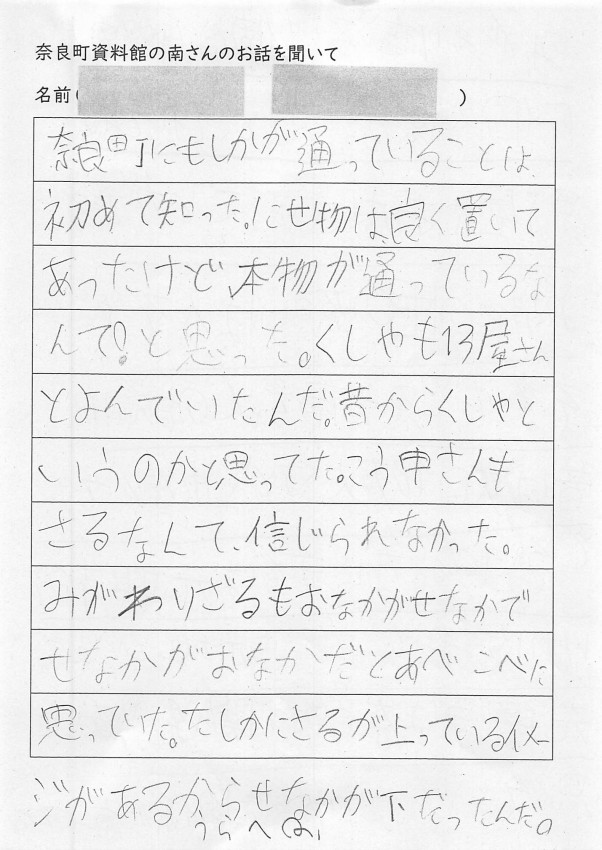 奈良町資料館の南さんのお話を聞いて
名前( )
奈良町にもしかが通っていることは、
初めて知った。にせ物は、良く置いて
あったけど、本物が通っているな
んて!と思った。くしやも13屋さん
とよんでいたんだ。昔からくしやと
いうのかと、思ってた。こう申さんも
さるなんて、信じられなかった。
みがわりざるもおなかがせなかで
せなかがおなかだとあべこべに
思っていた。たしかにさるが上っているイメー
ジがあるからせなかが下だったんだ。
うらへGO!